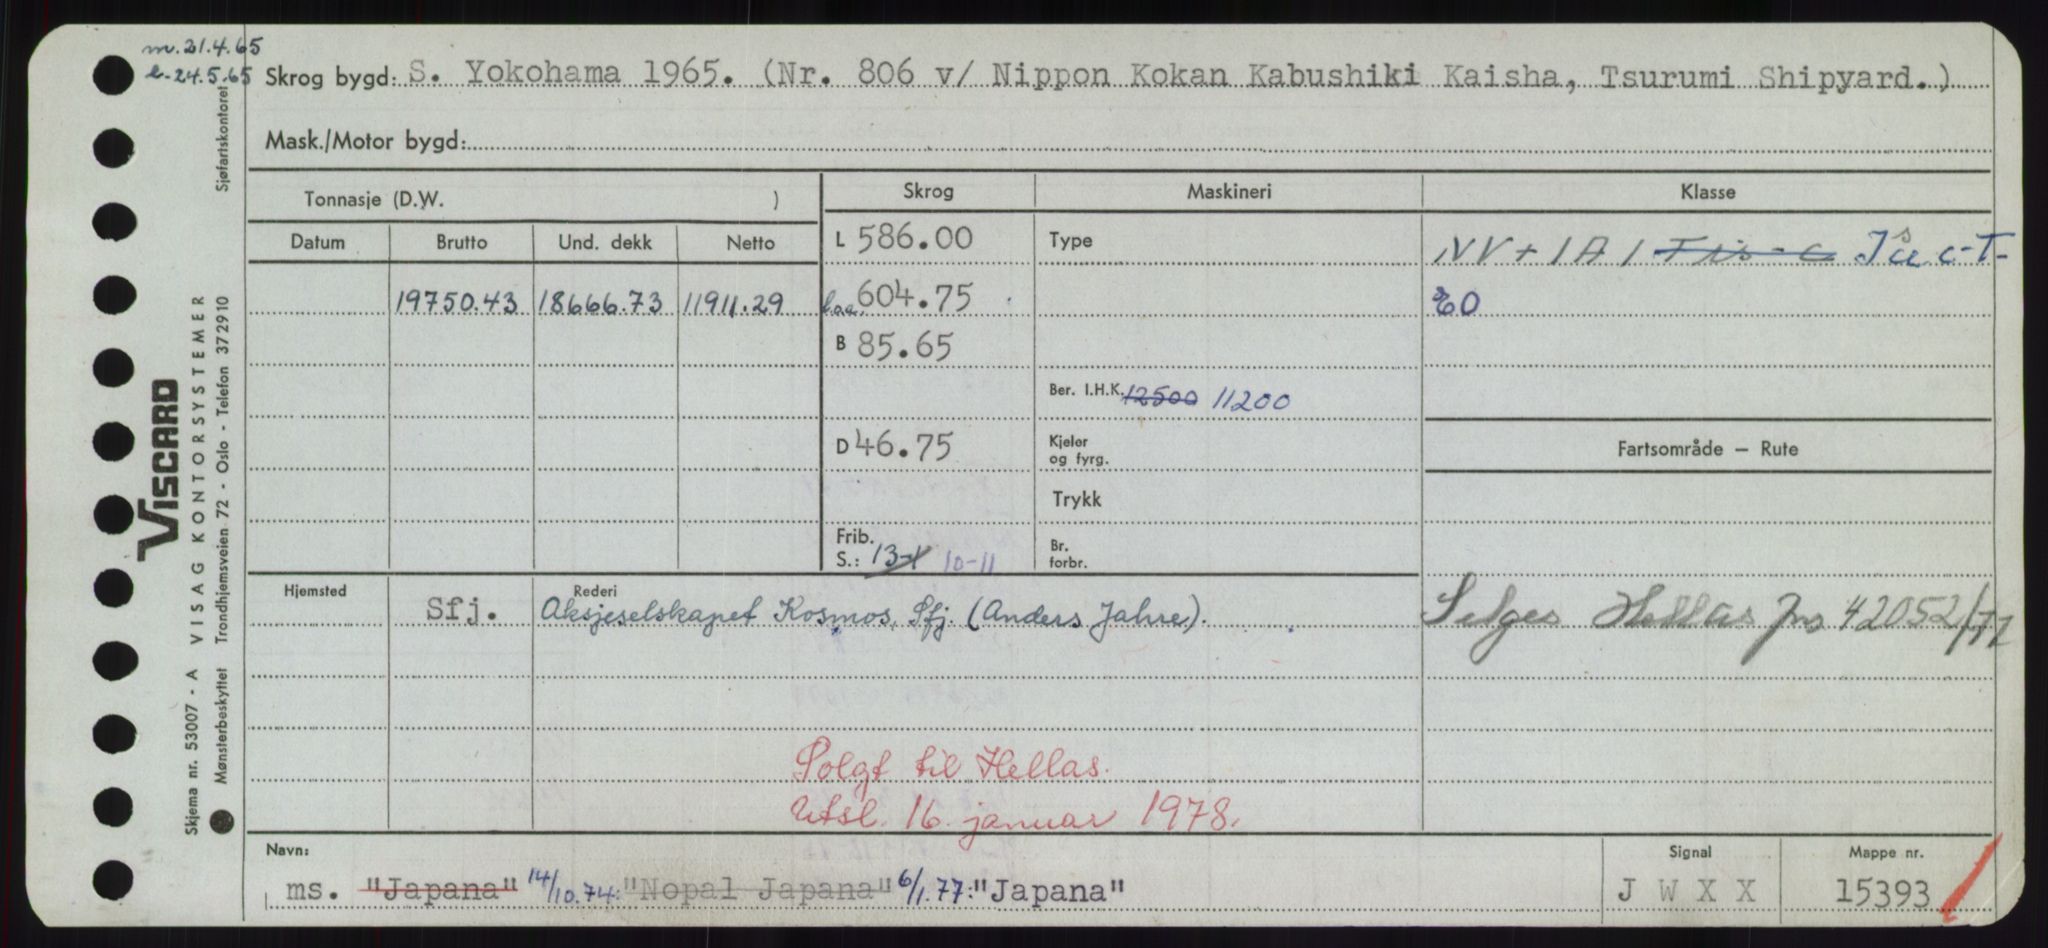 m. 21.4.65
l. 24.5.65 Skrog bygd: S. Yokohama 1965. (Nr. 806 v/ Nippon Kokan Kabushiki Kaisha, Tsurumi Shipyard.)
Mask./Motor bygd:
Tonnasje (D.W. ) Skrog Maskineri Klasse
Datum Brutto Und. dekk Netto L 586.00 Type NV + 1A1 Is C-T-
19750.43 18666.73 11911.29 l.o.a. 604.75 E0
B 85.65
Ber. I.H.K. 12500 11200
D 46.75 Kjeler og fyrg. Fartsområde — Rute
Trykk
Frib. S.: 13-1 10-11 Br. forbr.
Hjemsted Rederi
Sfj. Aksjeselskapet Kosmos, Sfj. (Anders Jahre). Selges Hellas Jnr 42052/77
Solgt til Hellas.
Utsl. 16. januar 1978.
Navn: Signal Mappe nr.
ms. "Japana" 14/10.74: "Nopal Japana" 6/1.77: "Japana" J W X X 15393
VISCARD
VISAG KONTORSYSTEMER
Skjema nr. 53007 - A
Mønsterbeskyttet Trondhjemsveien 72 - Oslo - Telefon 372910
Sjøfartskontoret